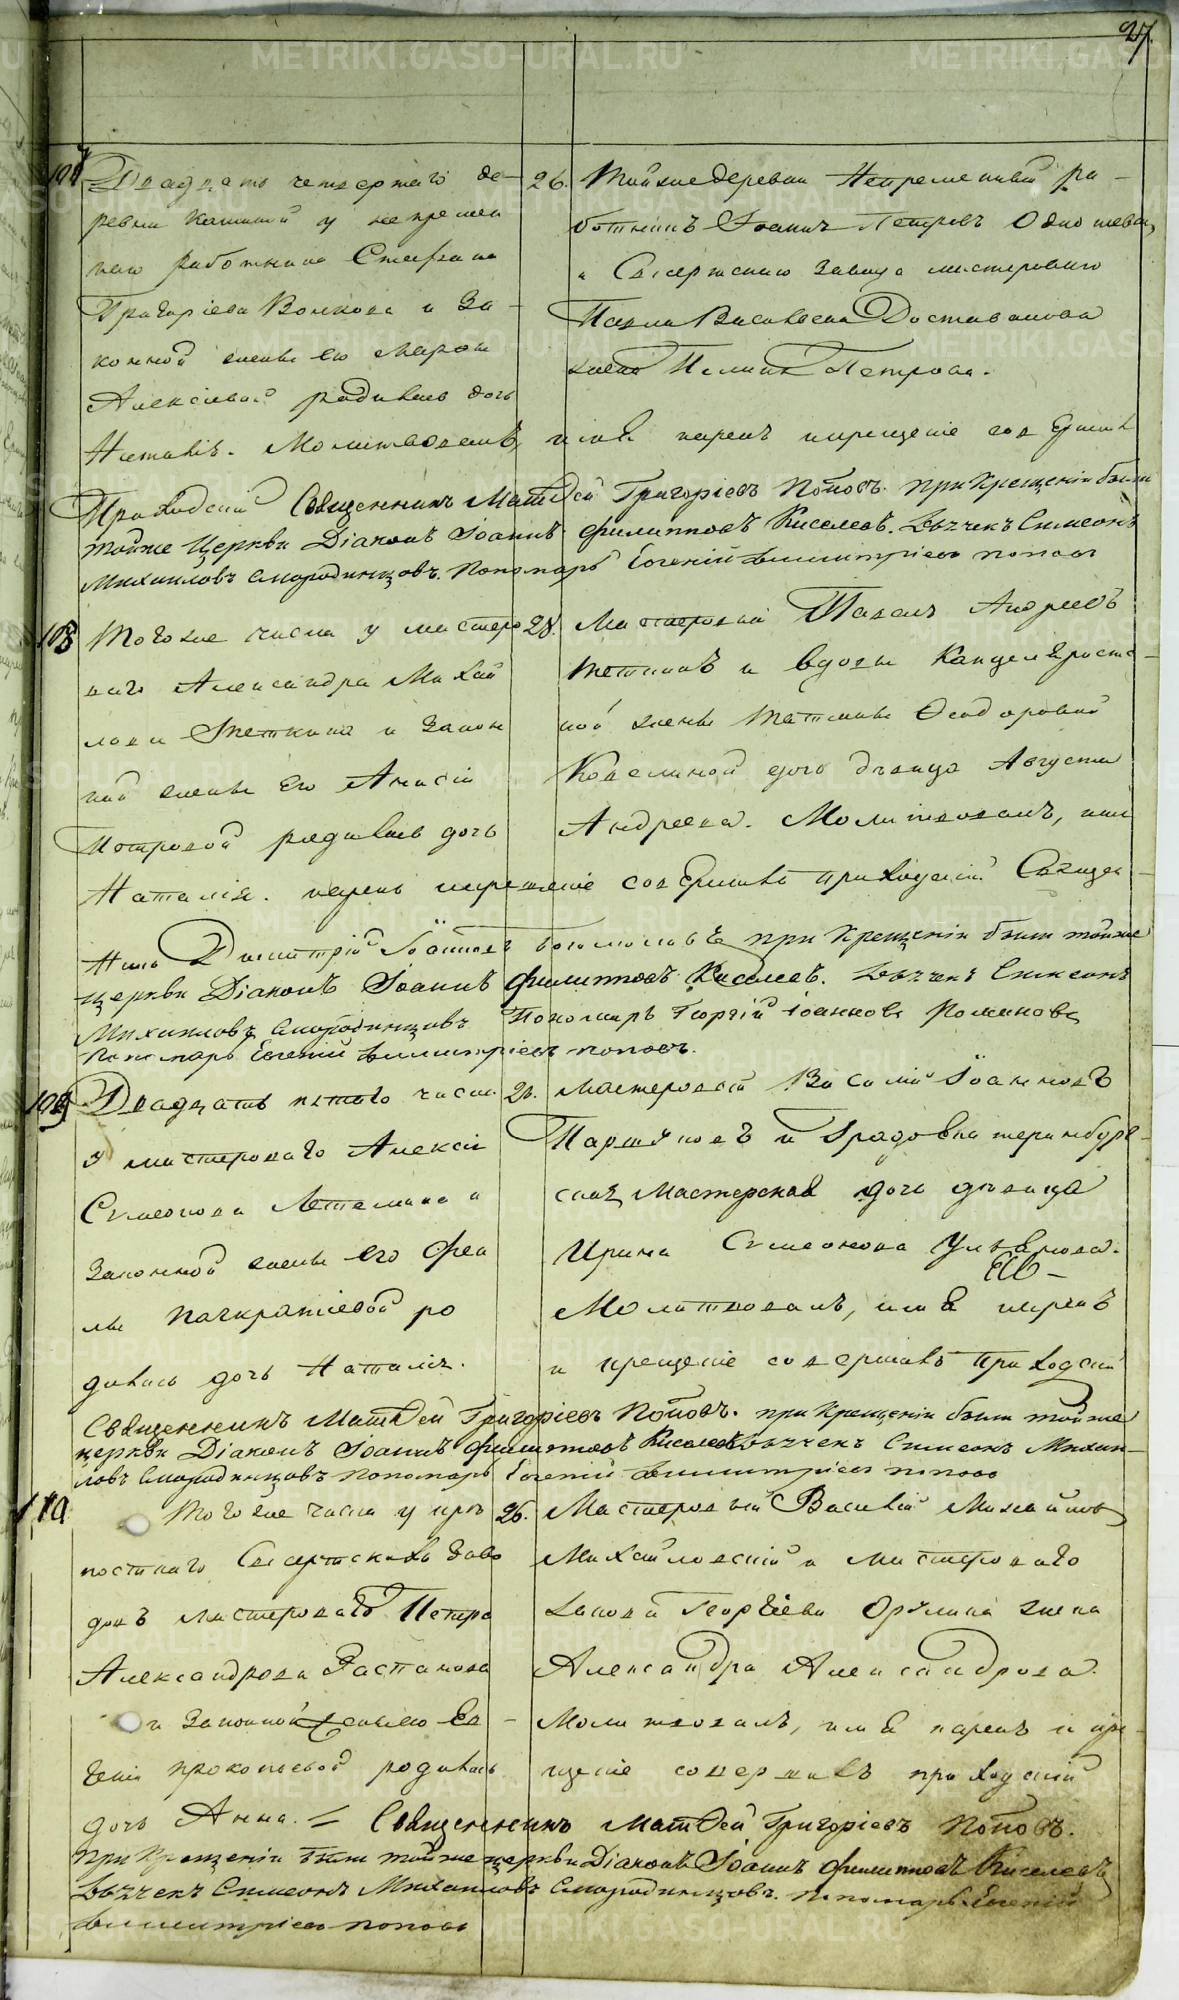 27.
107
Двадцать четвертаго де-
ревни Кашиной у непремен
наго работника Стефана
Григорieва Волкова и за-
конной жены его Марѳы
Алексiевой родилась дочь
Наталiя. Молитвовалъ,
26. Тойже деревни Непременный ра-
ботникъ Iоаннъ Петровъ
и Сысертскаго завода мастероваго
Павла Васильева Доставалова
жена Петрова.
имя нарекъ и крещенiе совершилъ
Приходскiй Священникъ Матѳей Григорiевъ Поповъ. При Крещенiи были
тойже Церкви Дiаконъ Iоаннъ Филипповъ Киселевъ. Дьячекъ Симеонъ
Михаиловъ Смородинцовъ. Пономарь Евгенiй Димитрiевъ Поповъ
108
Тогоже числа у мастеро
ваго Александра Михай
лова и закон
ной жены его Анисiи
Петровой родилась дочь
Наталiя.
28. Мастеровый Павелъ Андреевъ
и вдовы Канцелярист-
ной жены Татiаны Ѳеодоровой
дочь дѣвица Августа
Андреева. Молитвовалъ, имя
нарекъ и крещенiе совершилъ приходскiй Священ-
никъ Димитрiй Iоанновъ при Крещенiи были тойже
церкви Дiаконъ Iоаннъ Филипповъ Киселевъ. Дьячекъ Симеонъ
Михаиловъ Смородинцовъ Пономарь Георгiй Iоанновъ Романовъ
Пономарь Евгенiй Димитрiевъ Поповъ.
109
Двадцать пятаго числа
у мастероваго Алексiя
Симеонова Летемина и
законной жены его Ѳек
лы Панкратiевой ро
дилась дочь Наталiя.
26. Мастеровой Василiй Iоанновъ
Паршуковъ и Градовкатеринбург-
ская Мастерская дочь дѣвица
Ирина Симеонова
Молитвовалъ, имя нарекъ
и крещенiе совершилъ Приходскiй
Священникъ Матѳей Григорiевъ Поповъ. при Крещенiи были тойже
церкви Дiаконъ Iоаннъ Филипповъ Киселевъ Дьячекъ Симеонъ Михаи-
ловъ Смородинцовъ Пономарь Евгенiй Димитрiевъ Поповъ
110
Тогоже числа у крѣ
постнаго Сысертскихъ заво
довъ мастероваго Петра
Александрова Растанова
и законной жены Ев-
генiи Прокопьевой родилась
дочь Анна.
26. Мастеровый Василiй Михайловъ
Михайловскiй и мастероваго
Iакова Георгiева жена
Александра Александрова.
Молитвовалъ, имя нарекъ и кре-
щенiе совершилъ приходскiй
Священникъ Матѳей Григорiевъ Поповъ.
При Крещенiи были тойже церкви Дiаконъ Iоаннъ Филипповъ Киселевъ
Дьячекъ Симеонъ Михаиловъ Смородинцовъ. Пономарь Евгенiй
Димитрiевъ Поповъ
METRIKI.GASO-URAL.RU